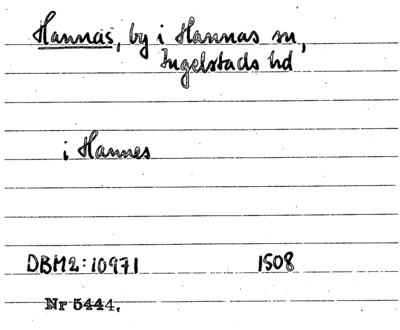 Hannas, by i Hannas sn,
Ingelstads hd
i Hannes
DBM2:10971 1508
Nr 5444.